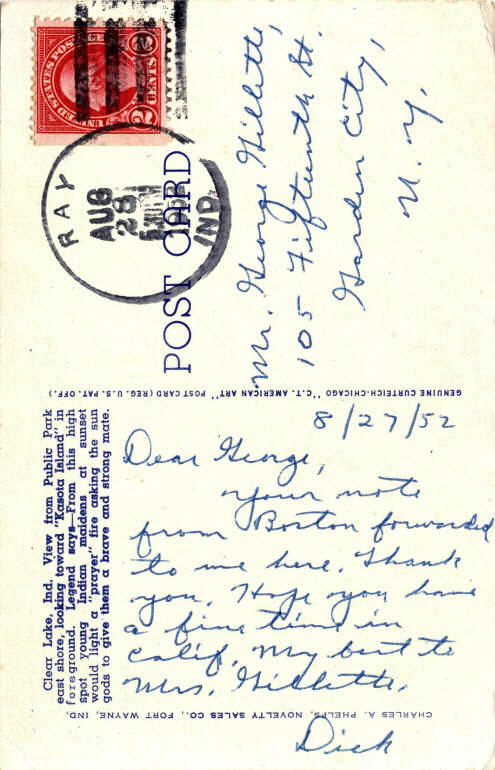 UNITED STATES POSTAGE
2 2
RAY
AUG
28
IND.
POST CARD
Mr. George Gillette,
105 Fifteenth St.
Garden City,
N. Y.
GENUINE CURTEICH-CHICAGO "C.T. AMERICAN ART" POST CARD (REG. U.S. PAT. OFF.)
Clear Lake, Ind. View from Public Park
east shore, looking toward "Kasota Island" in
foreground. Legend says—From this high
spot young Indian maidens at sunset
would light a "prayer" fire asking the sun
gods to give them a brave and strong mate.
8/27/52
Dear George,
Your note
from Boston forwarded
to me here. Thank
you. Hope you have
a fine time in
Calif. My best to
Mrs. Gillette.
Dick
CHARLES A. PHELPS, NOVELTY SALES CO., FORT WAYNE, IND.